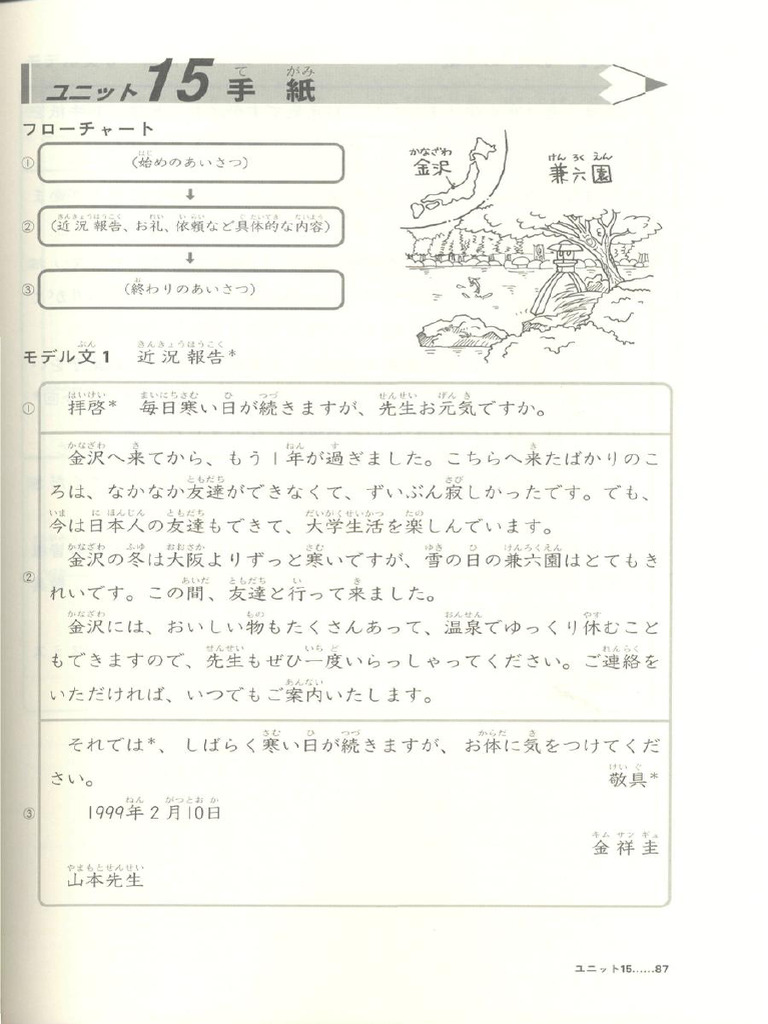 ユニット 15 手紙
フローチャート
① (始めのあいさつ)
↓
② (近況報告、お礼、依頼など具体的な内容)
↓
③ (終わりのあいさつ)
金沢
兼六園
モデル文1 近況報告*
① 拝啓* 毎日寒い日が続きますが、先生お元気ですか。
金沢へ来てから、もう1年が過ぎました。こちらへ来たばかりのこ
ろは、なかなか友達ができなくて、ずいぶん寂しかったです。でも、
今は日本人の友達もできて、大学生活を楽しんでいます。
金沢の冬は大阪よりずっと寒いですが、雪の日の兼六園はとてもき
② れいです。この間、友達と行って来ました。
金沢には、おいしい物もたくさんあって、温泉でゆっくり休むこと
もできますので、先生もぜひ一度いらっしゃってください。ご連絡を
いただければ、いつでもご案内いたします。
それでは*、しばらく寒い日が続きますが、お体に気をつけてくだ
さい。 敬具*
③ 1999年2月10日
金祥圭
山本先生
ユニット15……87